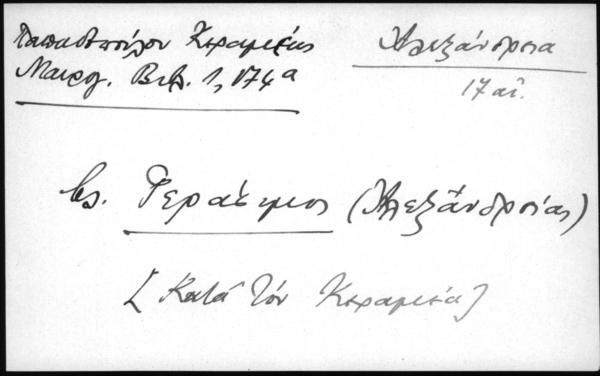 Παπαδοπούλου Κεραμεύς
Μαυρογ. Βιβ. 1, 174α
Ἀλεξάνδρεια
17 αἰ.
βλ. Γεράσιμος (Ἀλεξανδρείας)
[Κατὰ τὸν Κεραμέα]